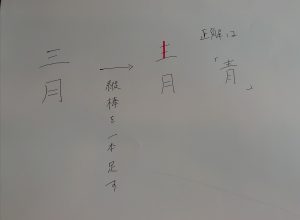 三
月
→
縦棒を一本足す
龶
月
正解は
「青」